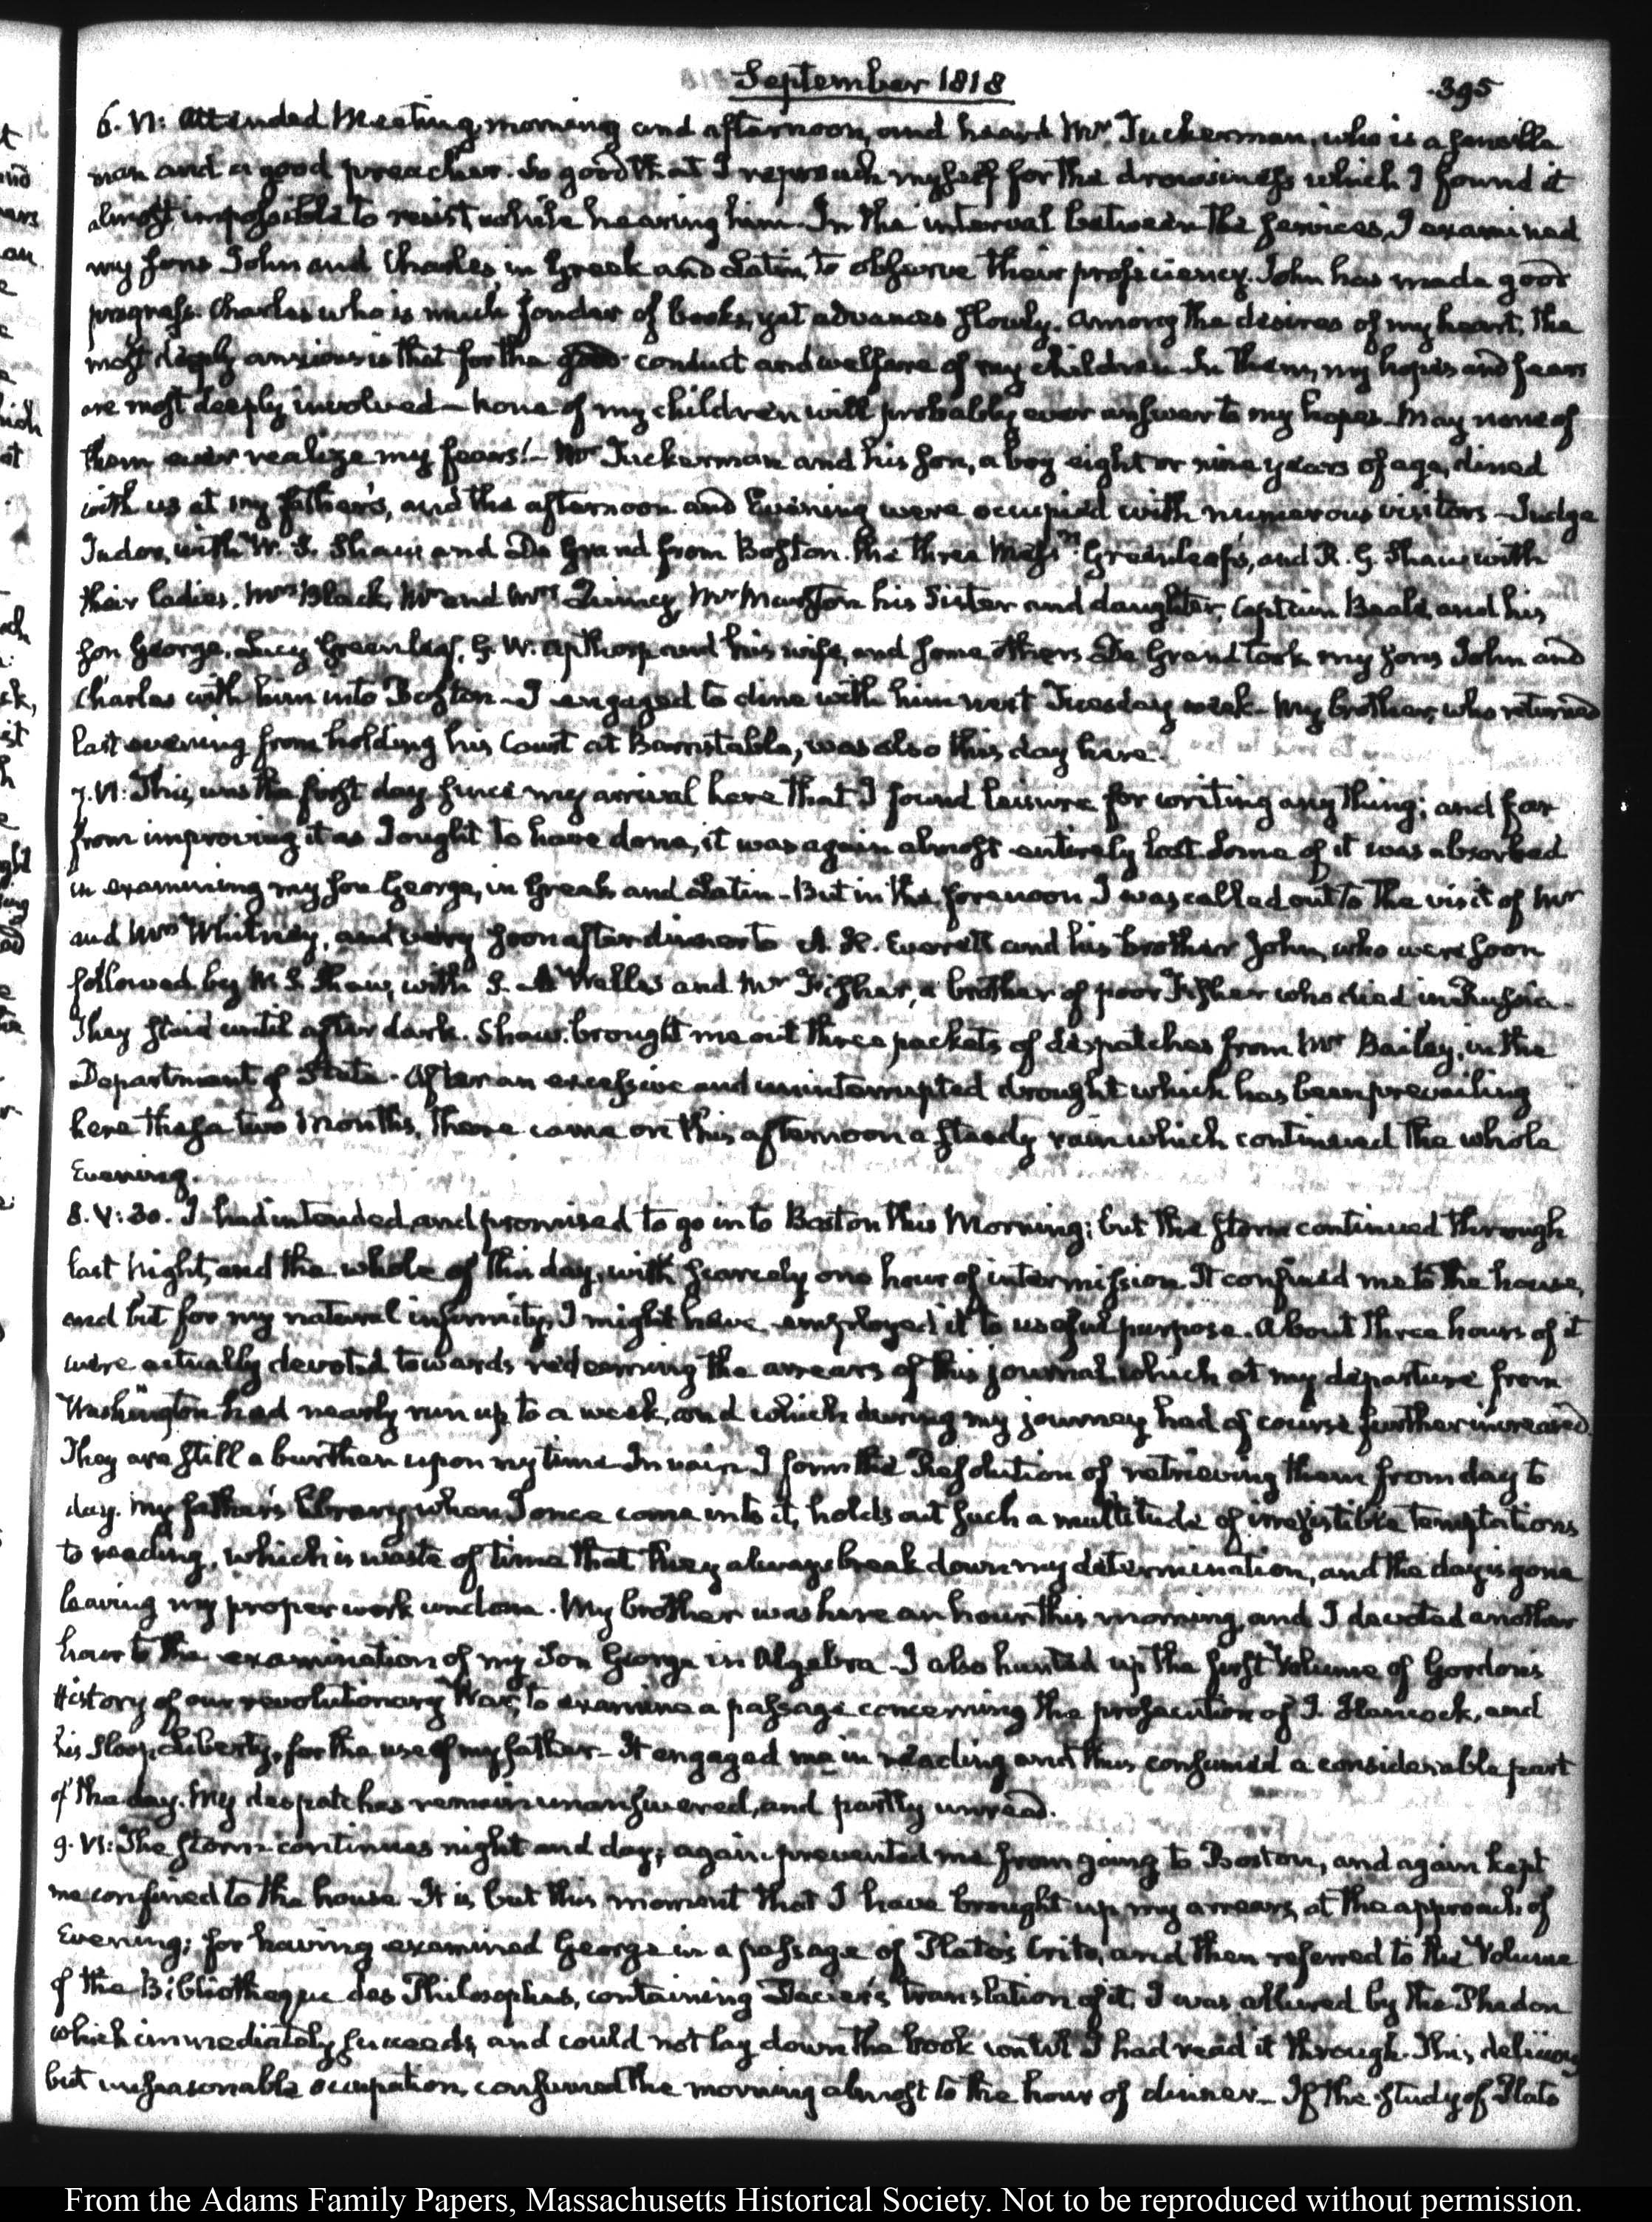 September 1818
395
6. VI: Attended Meeting, morning and afternoon, and heard Mr. Tuckerman, who is a sensible
man and a good preacher. So good that I reproach myself for the drowsiness which I found it
almost impossible to resist while hearing him. In the interval between the services, I examined
my sons John and Charles, in Greek and Latin, to observe their proficiency. John has made good
progress. Charles who is much fonder of books, yet advances slowly. Among the desires of my heart, the
most deeply anxious is that for the good conduct and welfare of my children. In them, my hopes and fears
are most deeply involved — None of my children will probably ever answer to my hopes. May none of
them ever realize my fears! — Mr Tuckerman and his son, a boy eight or nine years of age, dined
with us at my father's, and the afternoon and Evening were occupied with numerous visitors — Judge
Tudor, with W. S. Shaw and De Grand from Boston. the three Messrs. Greenleafs, and R. G. Shaw with
their ladies. Mrs Black, Mr and Mrs Quincy, Mr Marston his Sister and daughter, Captain Beale, and his
son George, Lucy Greenleaf, G. W. Apthorp and his wife, and some others. De Grand took my sons John and
Charles with him into Boston — I engaged to dine with him next Tuesday week. My brother, who returned
last evening from holding his Court at Barnstable, was also this day here.
7. VI: This was the first day since my arrival here that I found leisure for writing any thing; and far
from improving it as I ought to have done, it was again almost entirely lost. Some of it was absorbed
in examining my son George, in Greek and Latin — But in the forenoon I was called out to the visit of Mr
and Mrs Whitney, and very soon after dinner to A. H. Everett and his brother John, who were soon
followed by W. S. Shaw, with S. A Welles and Mr Fisher, a brother of poor Fisher who died in Russia.
They staid until after dark. Shaw brought me out three packets of despatches from Mr Bailey, in the
Department of State. After an excessive and uninterrupted drought which has been prevailing
here these two Months, there came on this afternoon a steady rain which continued the whole
Evening.
8. V: 30. I had intended and promised to go into Boston this Morning; but the storm continued through
last Night, and the whole of this day, with scarcely one hour of intermission. It confined me to the house,
and but for my natural infirmity, I might have employed it to useful purpose. About three hours of it
were actually devoted towards redeeming the arrears of this journal, which at my departure from
Washington had nearly run up to a week, and which during my journey had of course further increased.
They are still a burthen upon my time. In vain I form the Resolution of retrieving them from day to
day. My father's library when I once come into it, holds out such a multitude of irresistible temptations
to reading, which is waste of time that they always break down my determination, and the day is gone
leaving my proper work undone. My brother was here an hour this morning, and I devoted another
hour to the examination of my Son George in Algebra. I also hunted up the first Volume of Gordon's
History of our revolutionary War, to examine a passage concerning the prosecution of J. Hancock, and
his Sloop Liberty, for the use of my father — It engaged me in reading and thus consumed a considerable part
of the day. My despatches remain unanswered, and partly unread.
9. VI: The storm continues night and day; again prevented me from going to Boston, and again kept
me confined to the house. It is but this moment that I have brought up my arrears, at the approach of
Evening; for having examined George in a passage of Plato's Crito, and then referred to the Volume
of the Bibliotheque des Philosophes, containing Dacier's translation of it, I was allured by the Phedon
which immediately succeeds, and could not lay down the book until I had read it through. This delicious
but unseasonable occupation, consumed the morning almost to the hour of dinner — If the study of Plato
From the Adams Family Papers, Massachusetts Historical Society. Not to be reproduced without permission.